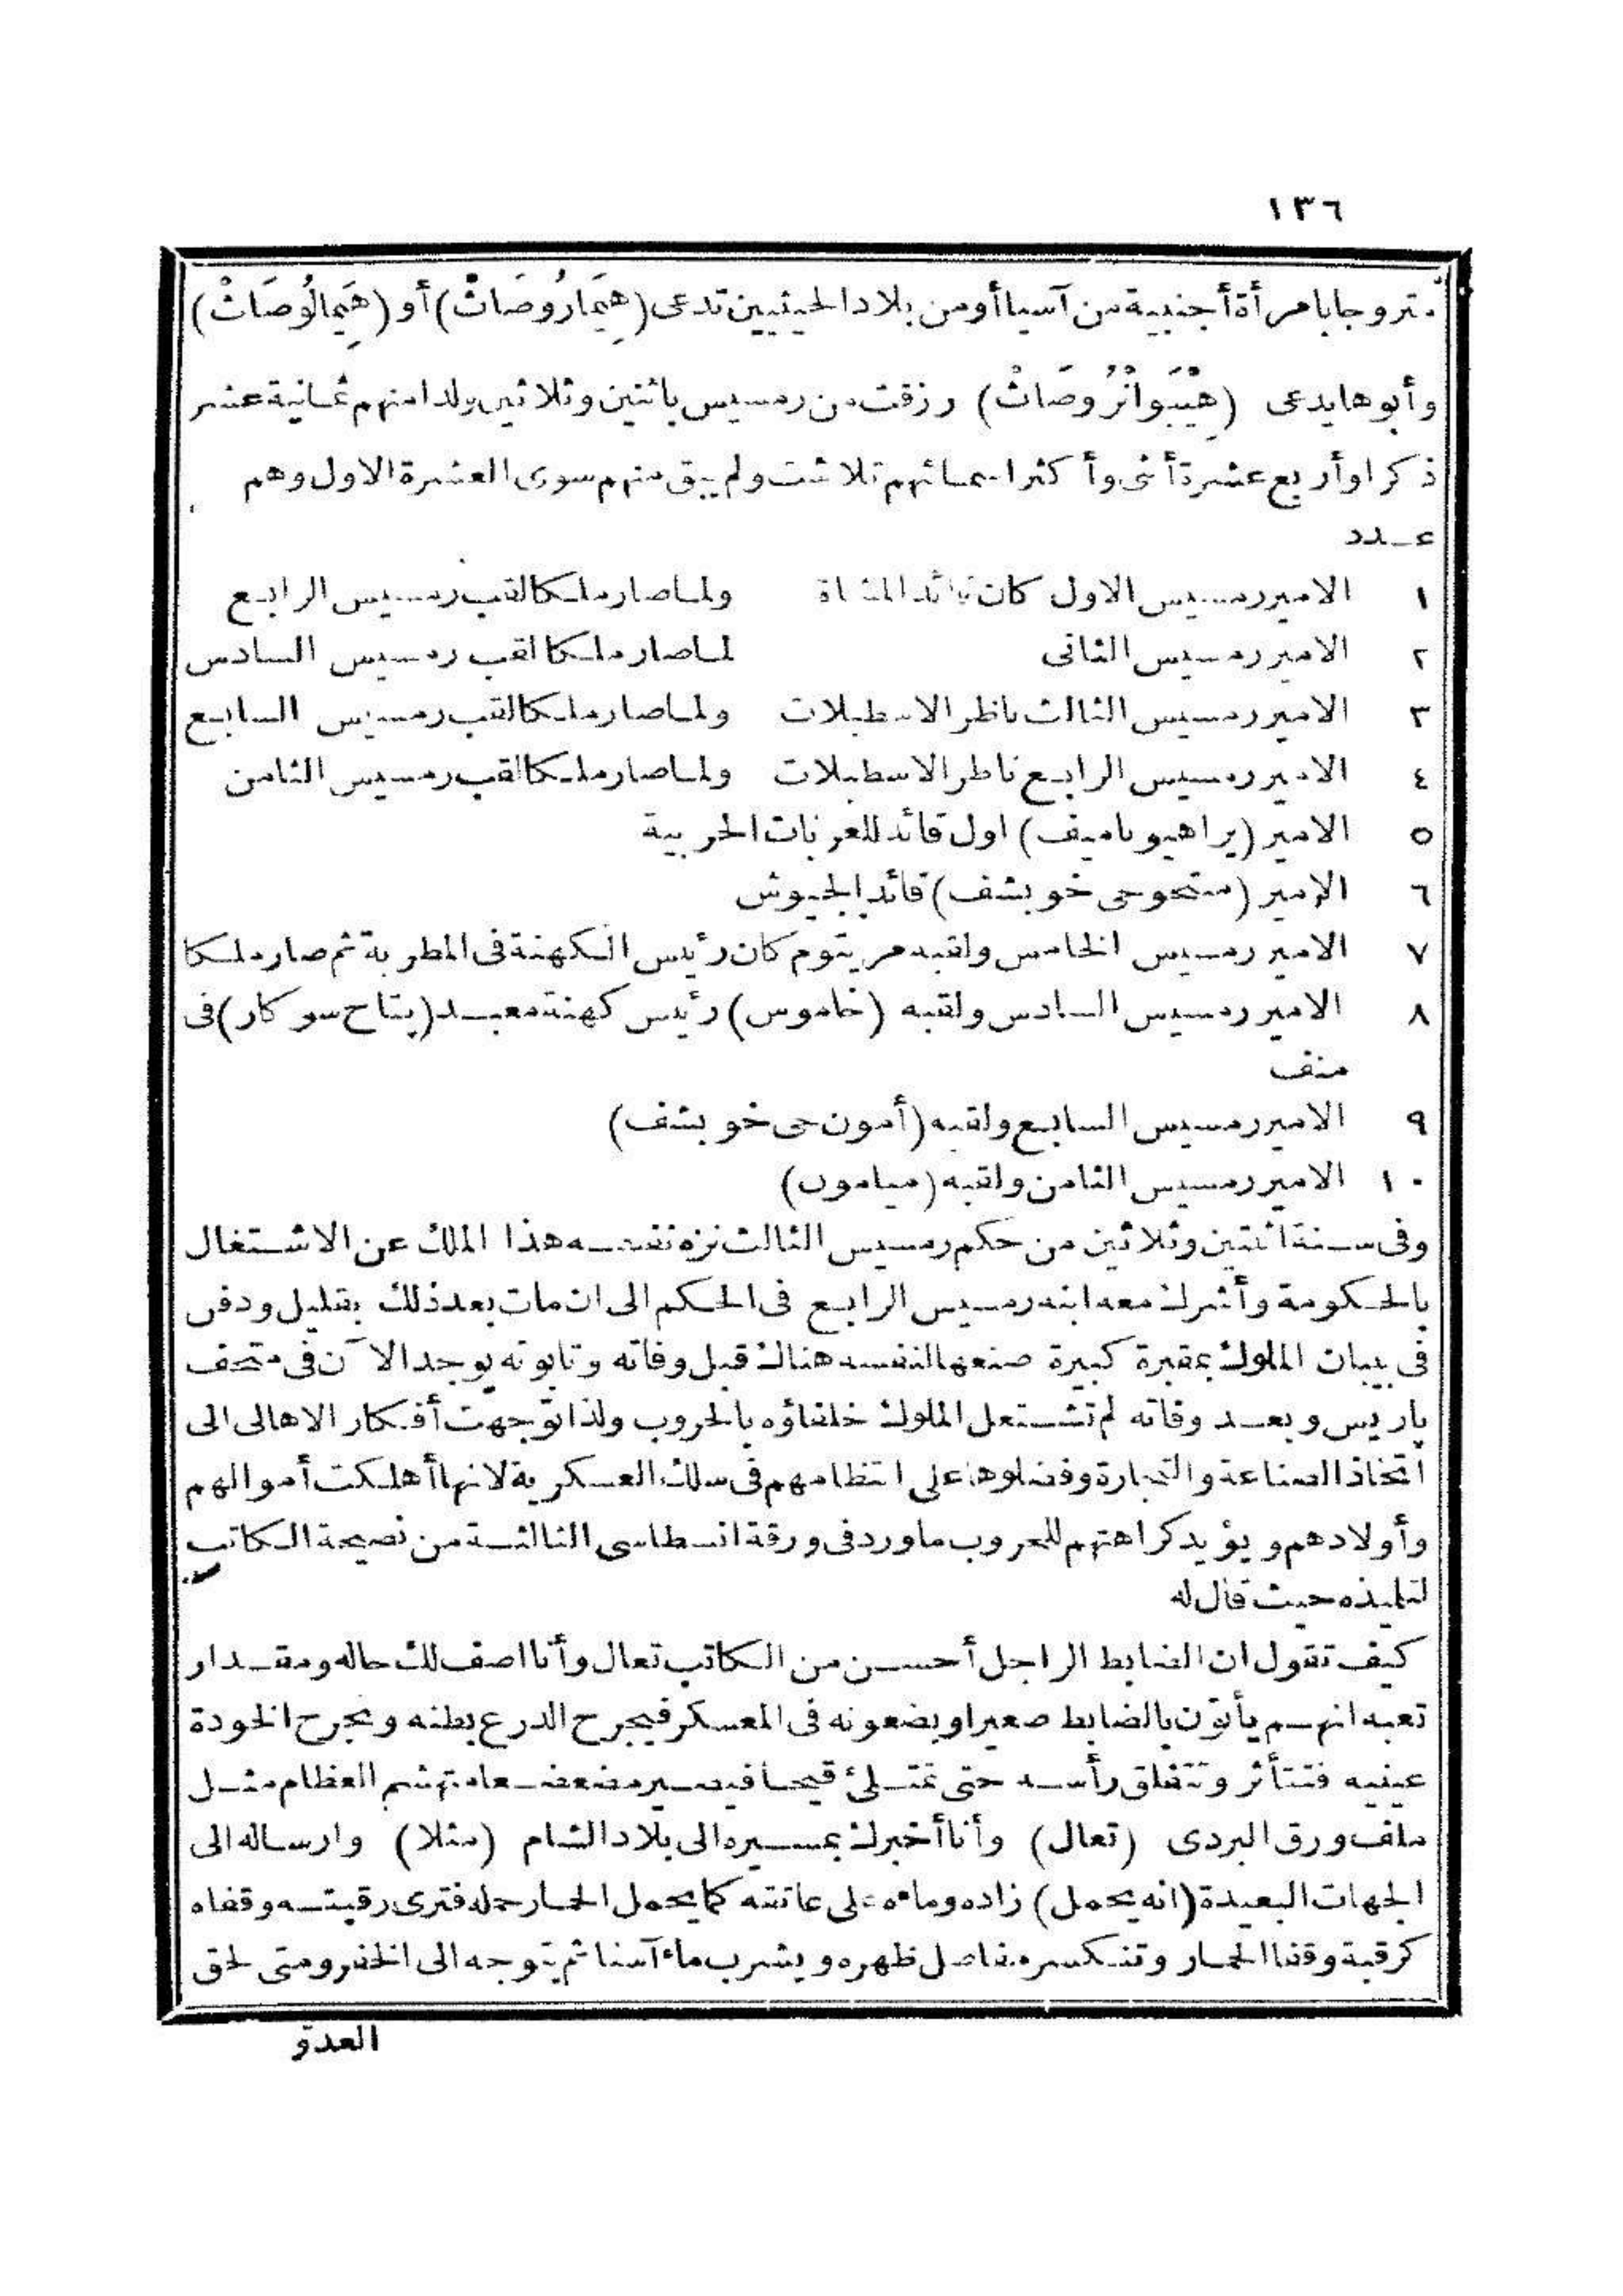 ١٣٦
متزوجا بامرأة أجنبية من آسيا أو من بلاد الحيثيين تدعى (هِيَمَارُوصَاتْ) أو (هِيَمَالُوصَاتْ)
وأبوها يدعى (هِيْبَوَانْرُوصَاتْ) رزقت من رمسيس باثنين وثلاثين ولدا منهم ثمانية عشر
ذكرا وأربع عشرة أنثى وأكثر اسمائهم تلاشت ولم يبق منهم سوى العشرة الاول وهم
عدد
١ الامير رمسيس الاول كان قائد المشاة ولما صار ملكا لقب رمسيس الرابع
٢ الامير رمسيس الثانى لما صار ملكا لقب رمسيس السادس
٣ الامير رمسيس الثالث ناظر الاسطبلات ولما صار ملكا لقب رمسيس السابع
٤ الامير رمسيس الرابع ناظر الاسطبلات ولما صار ملكا لقب رمسيس الثامن
٥ الامير (پراهيوناميف) اول قائد للعربات الحربية
٦ الامير (منتحوحى خوبشف) قائد الجيوش
٧ الامير رمسيس الخامس ولقبه مريتوم كان رئيس الكهنة فى المطرية ثم صار ملكا
٨ الامير رمسيس السادس ولقبه (خاموس) رئيس كهنة معبد (پتاح سوكار) فى
منف
٩ الامير رمسيس السابع ولقبه (أمون حى خوبشف)
١٠ الامير رمسيس الثامن ولقبه (ميامون)
وفى سنة اثنتين وثلاثين من حكم رمسيس الثالث نزه نفسه هذا الملك عن الاشتغال
بالحكومة وأشرك معه ابنه رمسيس الرابع فى الحكم الى ان مات بعد ذلك بقليل ودفن
فى بيبان الملوك بمقبرة كبيرة صنعها لنفسه هناك قبل وفاته وتابوته يوجد الآن فى متحف
پاريس وبعد وفاته لم تشتعل الملوك خلفاؤه بالحروب ولذا توّجهت أفكار الاهالى الى
اتخاذ الصناعة والتجارة وفضلوها على انتظامهم فى سلك العسكرية لانها أهلكت أموالهم
وأولادهم ويؤيد كراهتهم للحروب ما ورد فى ورقة انسطاسى الثالثة من نصيحة الكاتب
لتلميذه حيث قال له
كيف تقول ان الضابط الراجل أحسن من الكاتب تعال وأنا اصف لك حاله ومقدار
تعبه انهم يأتوّن بالضابط صغيرا ويضعونه فى المعسكر فيجرح الدرع بطنه وتجرح الخودة
عينيه فتتأثر وتتفلق رأسه حتى تمتلئ قيحا فيصير مضعضعا متهشم العظام مثل
ملف ورق البردى (تعال) وأنا أخبرك بمسيره الى بلاد الشام (مثلا) وارساله الى
الجهات البعيدة (انه يحمل) زاده وماءه على عاتقه كما يحمل الحمار حمله فترى رقبته وقفاه
كرقبة وقفا الحمار وتنكسر مفاصل ظهره ويشرب ماء آسنا ثم يتوجه الى الخفر ومتى لحق
العدوّ